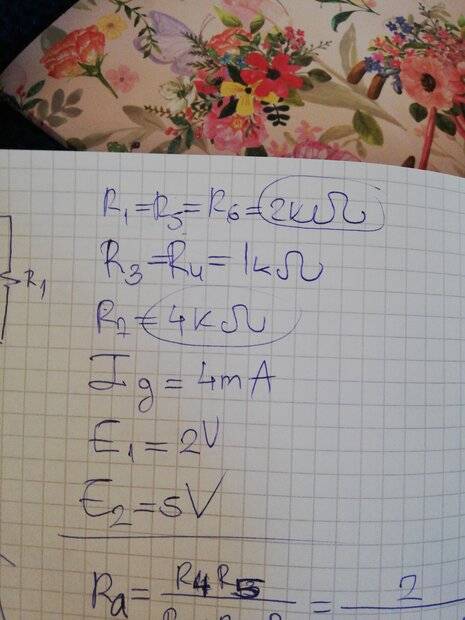 R1=R5=R6=2kΩ
R3=R4=1kΩ
=4kΩ
Ig=4mA
E1=2V
E2=5V
R1
Ra= R4R5 / = 2